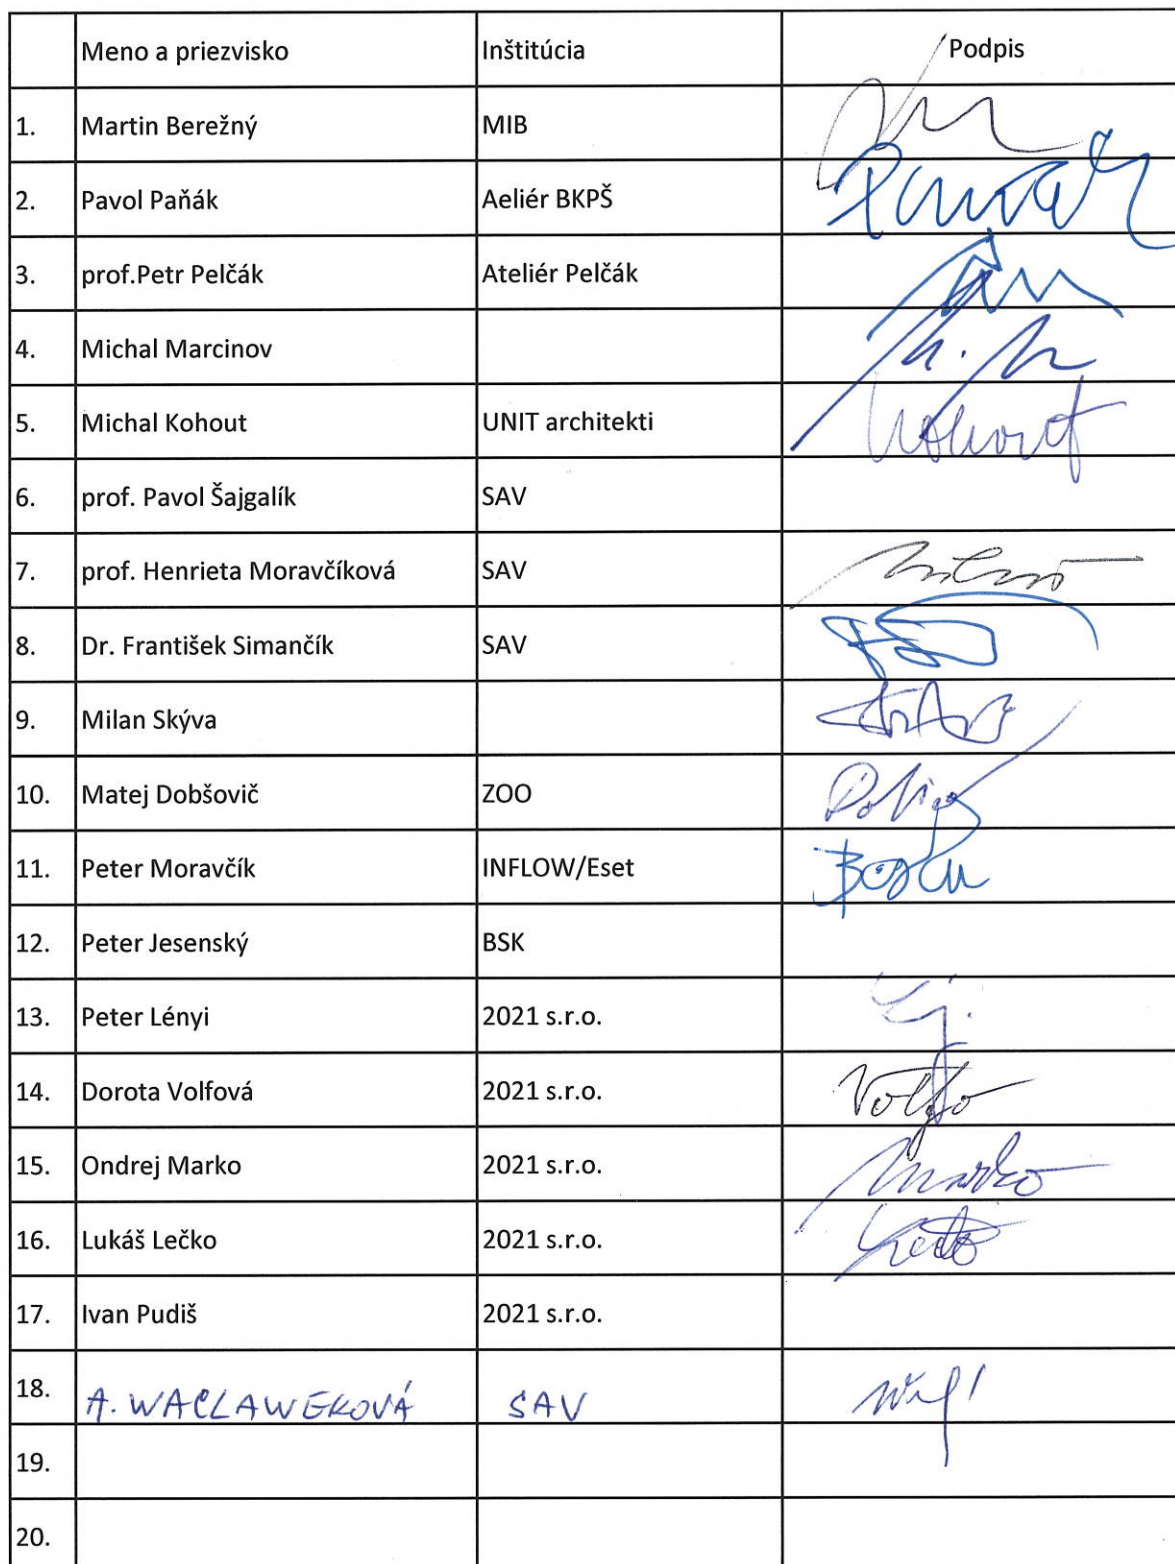 Meno a priezvisko Inštitúcia Podpis
1. Martin Berežný MIB
2. Pavol Paňák Aeliér BKPŠ
3. prof.Petr Pelčák Ateliér Pelčák
4. Michal Marcinov
5. Michal Kohout UNIT architekti Kohout
6. prof. Pavol Šajgalík SAV
7. prof. Henrieta Moravčíková SAV
8. Dr. František Simančík SAV
9. Milan Skýva
10. Matej Dobšovič ZOO
11. Peter Moravčík INFLOW/Eset
12. Peter Jesenský BSK
13. Peter Lényi 2021 s.r.o.
14. Dorota Volfová 2021 s.r.o.
15. Ondrej Marko 2021 s.r.o. Marko
16. Lukáš Lečko 2021 s.r.o.
17. Ivan Pudiš 2021 s.r.o.
18. A. WACLAWEKOVÁ SAV
19.
20.